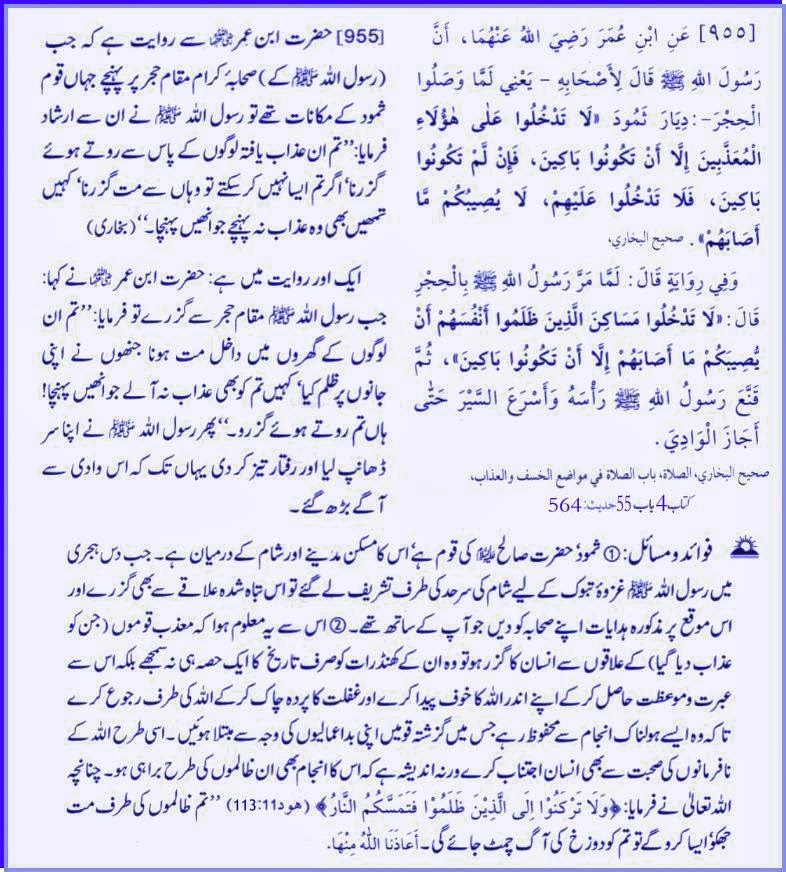 [٩٥٥] عَنِ ابْنِ عُمَرَ رَضِيَ اللهُ عَنْهُمَا، أَنَّ
رَسُولَ اللهِ ﷺ قَالَ لِأَصْحَابِهِ - يَعْنِي لَمَّا وَصَلُوا
الْحِجْرَ-: دِيَارَ ثَمُودَ «لَا تَدْخُلُوا عَلَى هٰؤُلَاءِ
الْمُعَذَّبِينَ إِلَّا أَنْ تَكُونُوا بَاكِينَ، فَإِنْ لَمْ تَكُونُوا
بَاكِينَ، فَلَا تَدْخُلُوا عَلَيْهِمْ، لَا يُصِيبُكُمْ مَّا
أَصَابَهُمْ». صحيح البخاري،
وَفِي رِوَايَةٍ قَالَ: لَمَّا مَرَّ رَسُولُ اللهِ ﷺ بِالْحِجْرِ
قَالَ: «لَا تَدْخُلُوا مَسَاكِنَ الَّذِينَ ظَلَمُوا أَنْفُسَهُمْ أَنْ
يُّصِيبَكُمْ مَا أَصَابَهُمْ إِلَّا أَنْ تَكُونُوا بَاكِينَ»، ثُمَّ
قَنَّعَ رَسُولُ اللهِ ﷺ رَأْسَهُ وَأَسْرَعَ السَّيْرَ حَتَّى
أَجَازَ الْوَادِيَ.
صحيح البخاري، الصلاة، باب الصلاة في مواضع الخسف والعذاب،
کتاب 4 باب 55 حدیث: 564
[955] حضرت ابن عمر ؓ سے روایت ہے کہ جب
(رسول اللہ ﷺ کے) صحابۂ کرام مقام حجر پر پہنچے جہاں قوم
ثمود کے مکانات تھے تو رسول اللہ ﷺ نے ان سے ارشاد
فرمایا: ’’تم ان عذاب یافتہ لوگوں کے پاس سے روتے ہوئے
گزرنا‘ اگر تم ایسا نہیں کر سکتے تو وہاں سے مت گزرنا‘ کہیں
تمھیں بھی وہ عذاب نہ پہنچے جو انھیں پہنچا۔‘‘ (بخاری)
ایک اور روایت میں ہے: حضرت ابن عمر ؓ نے کہا:
جب رسول اللہ ﷺ مقام حجر سے گزرے تو فرمایا: ’’تم ان
لوگوں کے گھروں میں داخل مت ہونا جنھوں نے اپنی
جانوں پر ظلم کیا‘ کہیں تم کو بھی عذاب نہ آ لے جو انھیں پہنچا!
ہاں تم روتے ہوئے گزرو۔‘‘ پھر رسول اللہ ﷺ نے اپنا سر
ڈھانپ لیا اور رفتار تیز کر دی یہاں تک کہ اس وادی سے
آگے بڑھ گئے۔
فوائد و مسائل: ① ثمود‘ حضرت صالح ؑ کی قوم ہے‘ اس کا مسکن مدینے اور شام کے درمیان ہے۔ جب دس ہجری
میں رسول اللہ ﷺ غزوۂ تبوک کے لیے شام کی سرحد کی طرف تشریف لے گئے تو اس تباہ شدہ علاقے سے بھی گزرے اور
اس موقع پر مذکورہ ہدایات اپنے صحابہ کو دیں جو آپ کے ساتھ تھے۔ ② اس سے یہ معلوم ہوا کہ معذب قوموں (جن کو
عذاب دیا گیا) کے علاقوں سے انسان کا گزر ہو تو وہ ان کے کھنڈرات کو صرف تاریخ کا ایک حصہ ہی نہ سمجھے بلکہ اس سے
عبرت و موعظت حاصل کر کے اپنے اندر اللہ کا خوف پیدا کرے اور غفلت کا پردہ چاک کر کے اللہ کی طرف رجوع کرے
تاکہ وہ ایسے ہولناک انجام سے محفوظ رہے جس میں گزشتہ قومیں اپنی بداعمالیوں کی وجہ سے مبتلا ہوئیں۔ اسی طرح اللہ کے
نافرمانوں کی صحبت سے بھی انسان اجتناب کرے ورنہ اندیشہ ہے کہ اس کا انجام بھی ان ظالموں کی طرح برا ہی ہو۔ چنانچہ
اللہ تعالیٰ نے فرمایا: ﴿وَلَا تَرْكَنُوْا اِلَى الَّذِيْنَ ظَلَمُوْا فَتَمَسَّكُمُ النَّارُ﴾ (هود 113:11) ’’تم ظالموں کی طرف مت
جھکو‘ ایسا کرو گے تو تم کو دوزخ کی آگ چمٹ جائے گی۔ أَعَاذَنَا اللّٰهُ مِنْهَا.